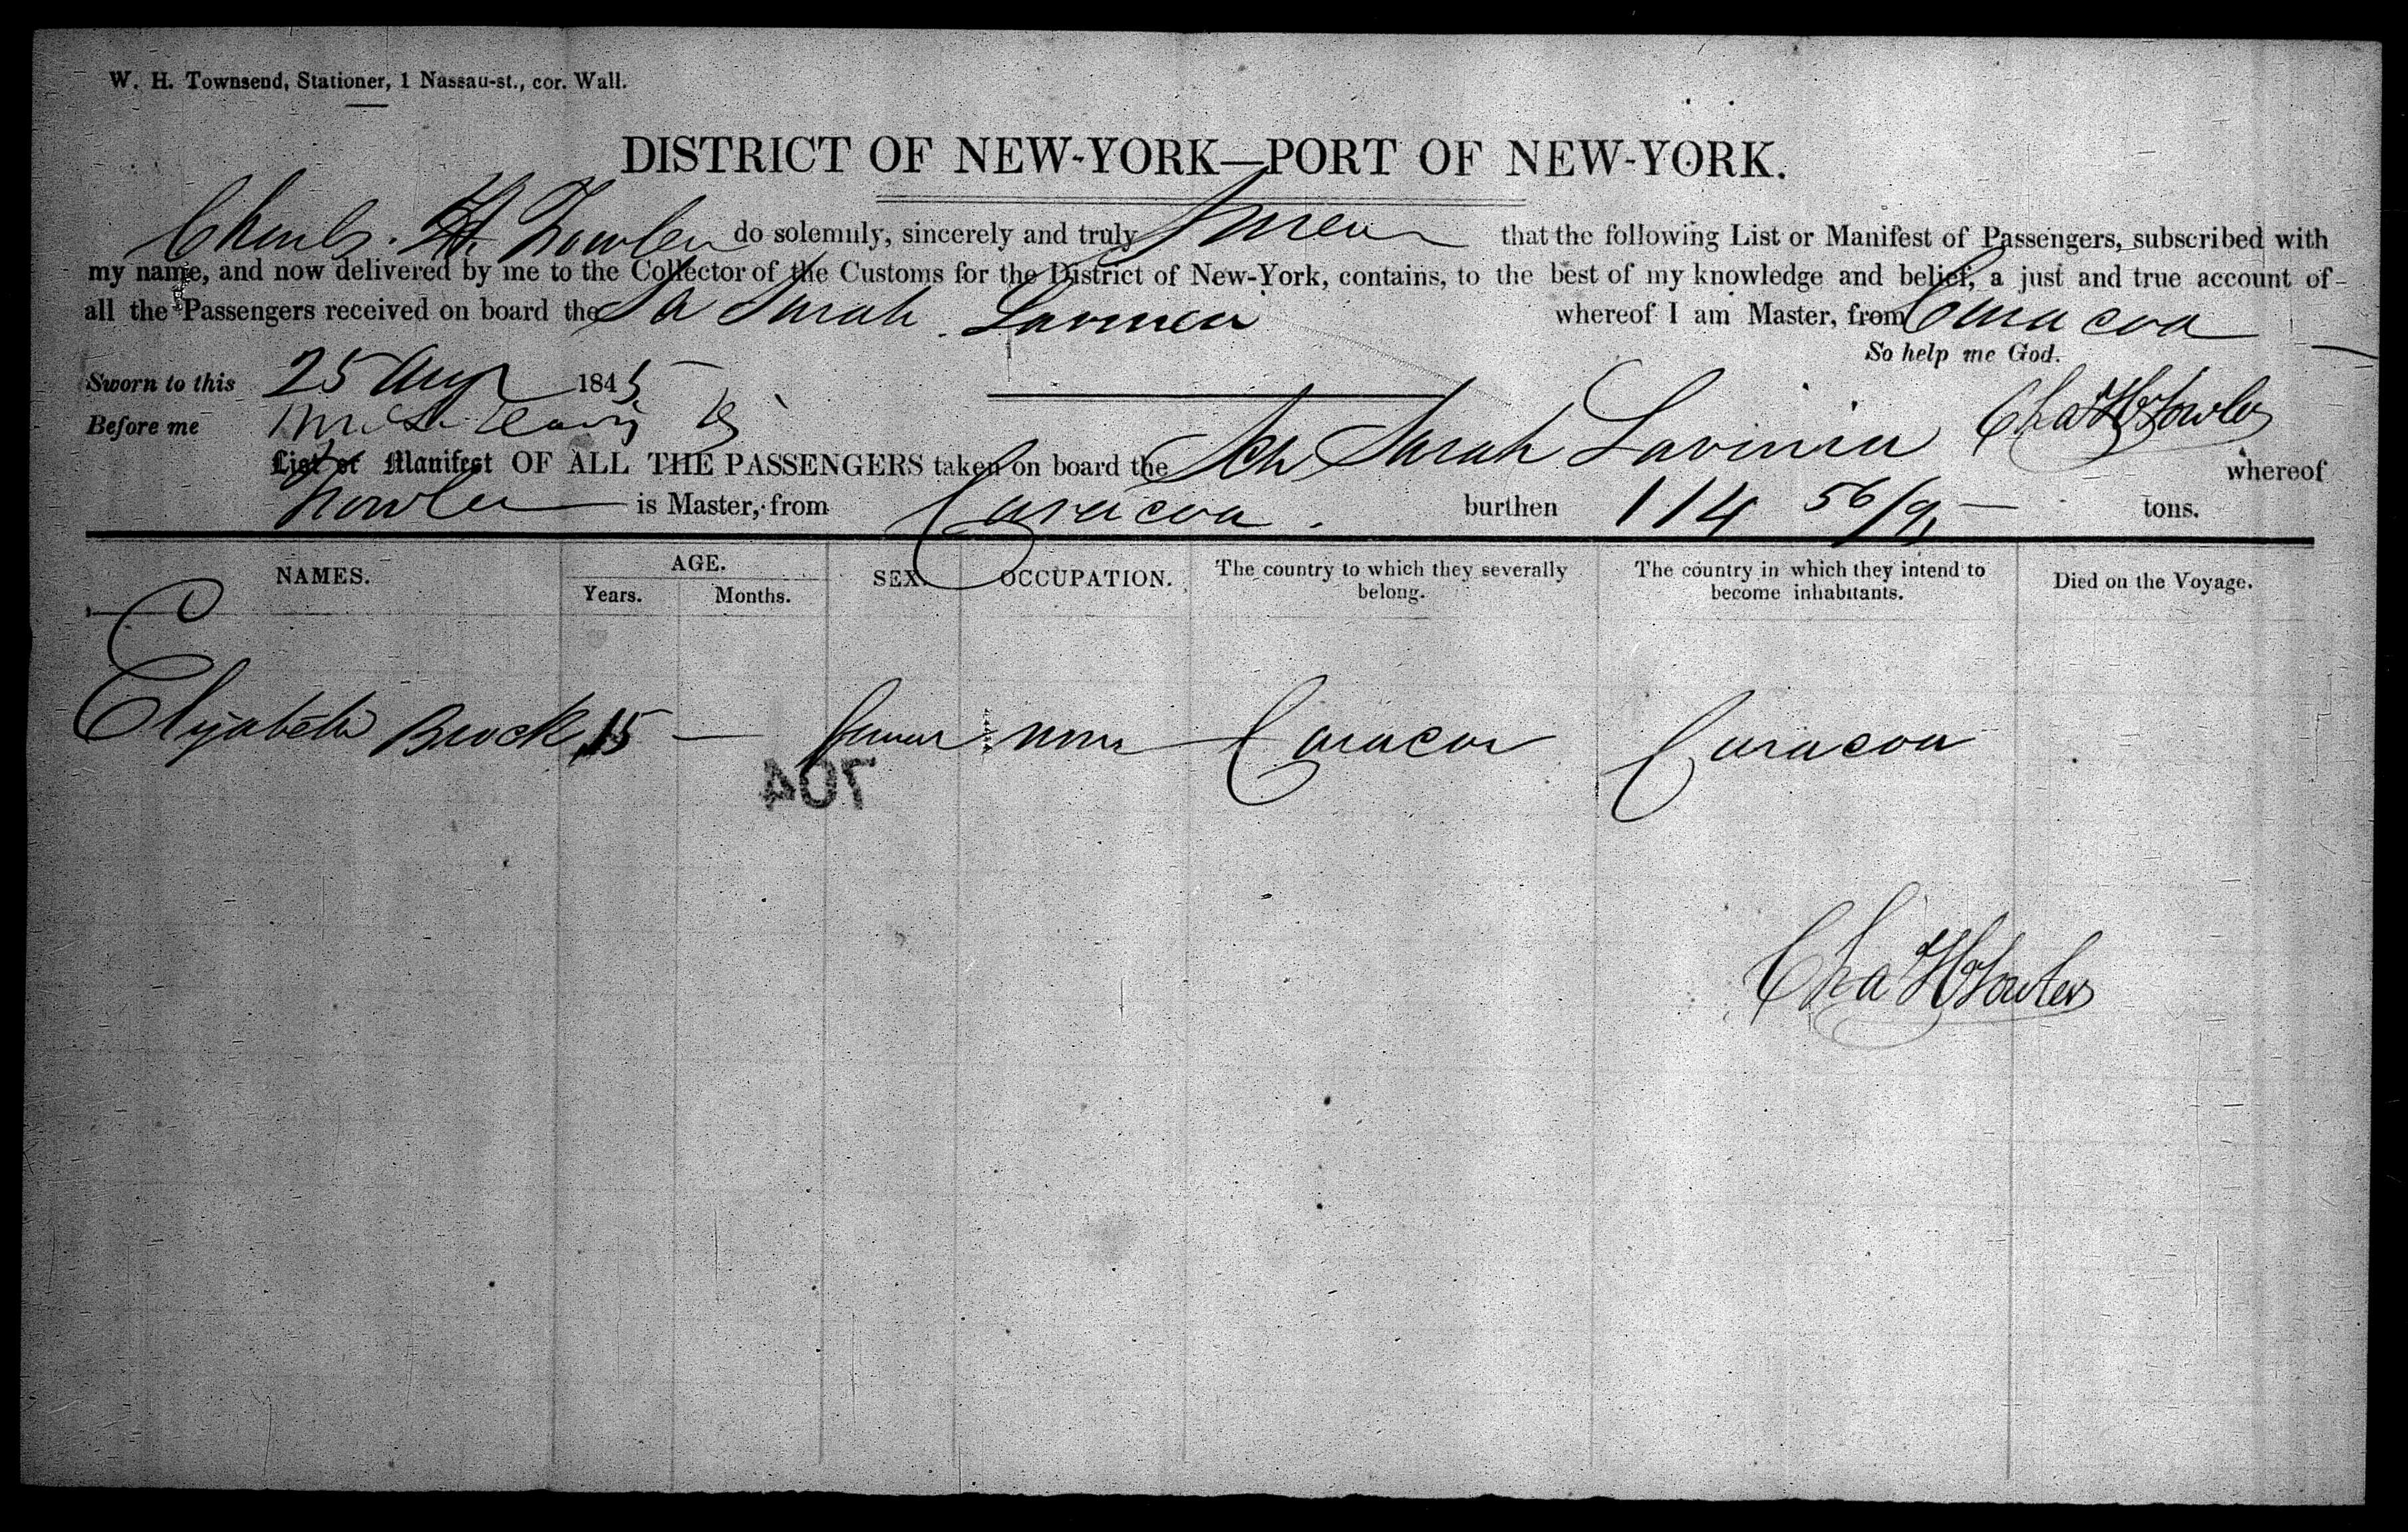 W. H. Townsend, Stationer, 1 Nassau-st., cor. Wall.
DISTRICT OF NEW-YORK—PORT OF NEW-YORK.
Charles. H. Fowler do solemnly, sincerely and truly Swear that the following List or Manifest of Passengers, subscribed with
my name, and now delivered by me to the Collector of the Customs for the District of New-York, contains, to the best of my knowledge and belief, a just and true account of
all the Passengers received on board the Sarah Lavinia whereof I am Master, from Curacoa
So help me God.
Sworn to this 25 Aug 1845
Before me
Chas H Fowler
List or Manifest OF ALL THE PASSENGERS taken on board the Sch Sarah Lavinia whereof
Fowler is Master, from Curacoa. burthen 114 56/95 tons.
NAMES. AGE. SEX. OCCUPATION. The country to which they severally belong. The country in which they intend to become inhabitants. Died on the Voyage.
Years. Months.
Elizabeth Brock 15 — female none Curacoa Curacoa
704
Chas H Fowler